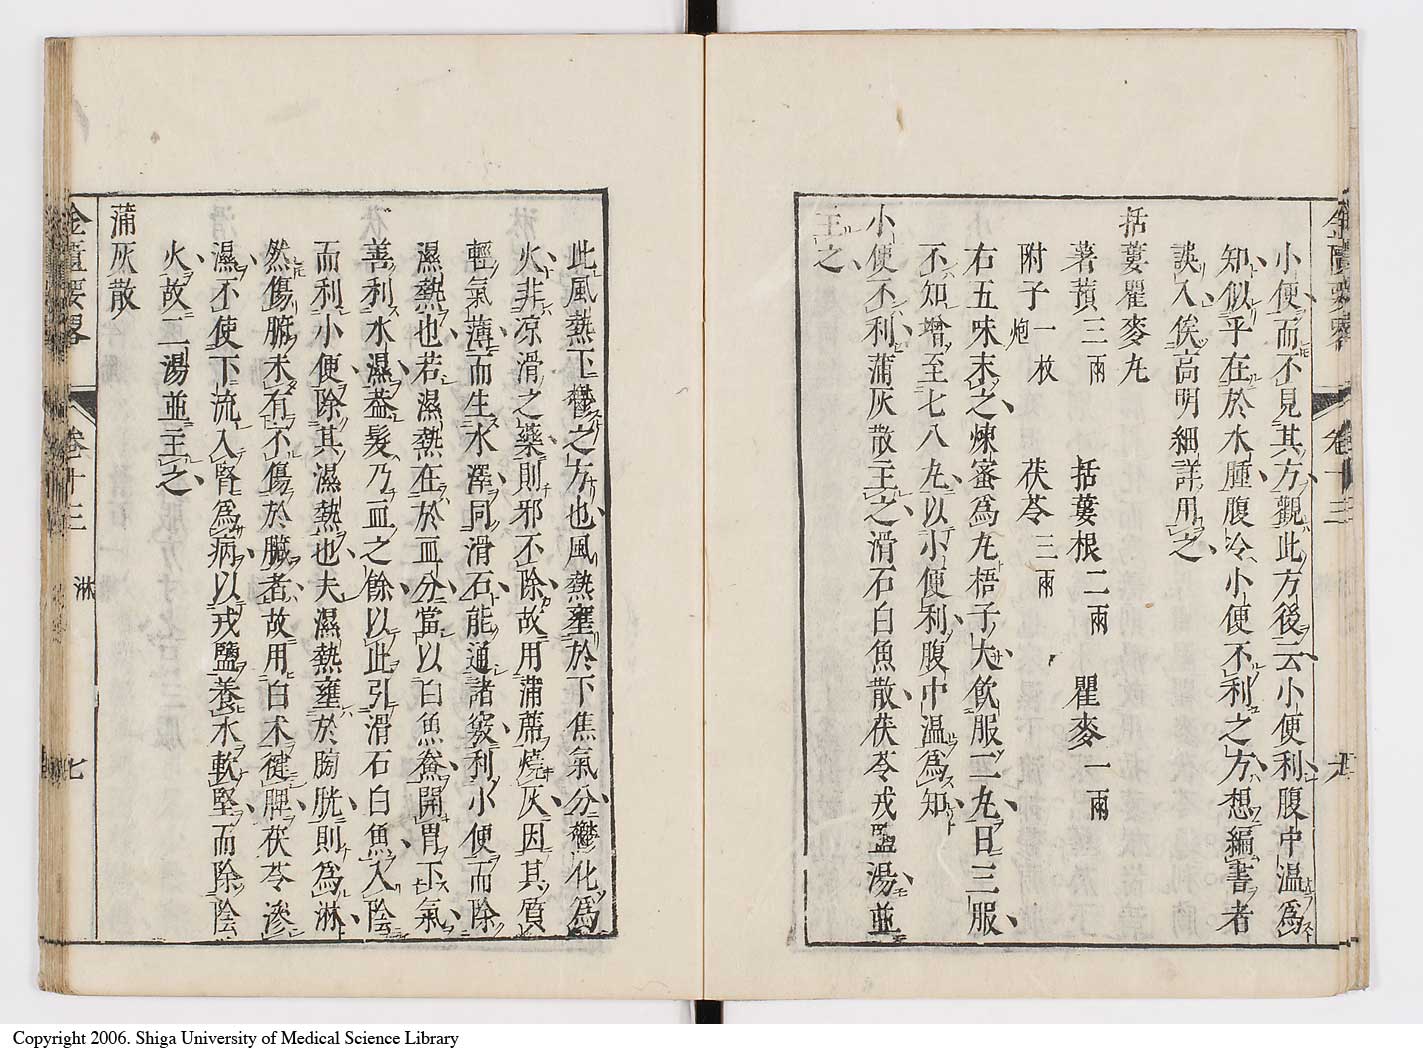 小便而不見其方觀此方後云小便利腹中温爲
知似乎在於水腫腹冷小便不利之方想編書者
誤入俟高明細詳用之
括蔞瞿麥丸
薯蕷三兩 括蔞根二兩 瞿麥一兩
附子一枚炮 茯苓三兩
右五味末之煉蜜爲丸梧子大飲服二丸日三服
不知增至七八丸以小便利腹中温爲知
小便不利蒲灰散主之滑石白魚散茯苓戎鹽湯並
主之
此風熱下鬱之方也風熱壅於下焦氣分鬱化爲
火非凉滑之藥則邪不除故用蒲蓆燒灰因其質
輕氣薄而生水澤同滑石能通諸竅利小便而除
濕熱也若濕熱在於血分當以白魚鮝開胃下氣
善利水濕葢髮乃血之餘以此引滑石白魚入陰
而利小便除其濕熱也夫濕熱壅於膀胱則爲淋
然傷腑未有不傷於臟者故用白术健脾茯苓滲
濕不使下流入腎爲病以戎鹽養水軟堅而除陰
火故二湯並主之
蒲灰散
金匱要畧 卷十三 淋 七